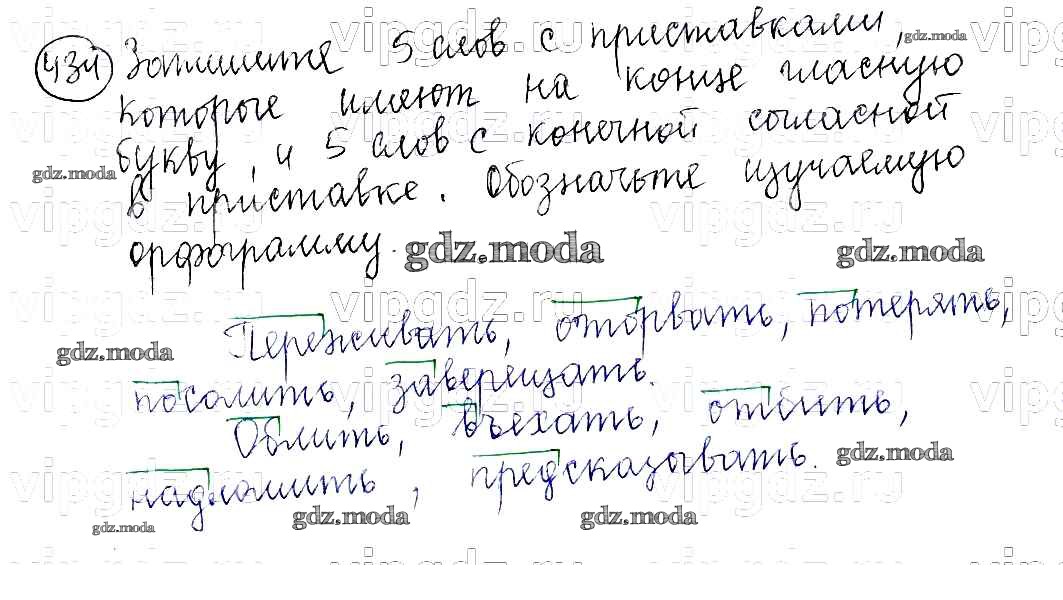 434 Запишите 5 слов с приставками,
которые имеют на конце гласную
букву, и 5 слов с конечной согласной
в приставке. Обозначьте изучаемую
орфограмму.
Переживать, оторвать, потерять,
посолить, заверещать.
Облить, въехать, отбить,
надломить, предсказывать.